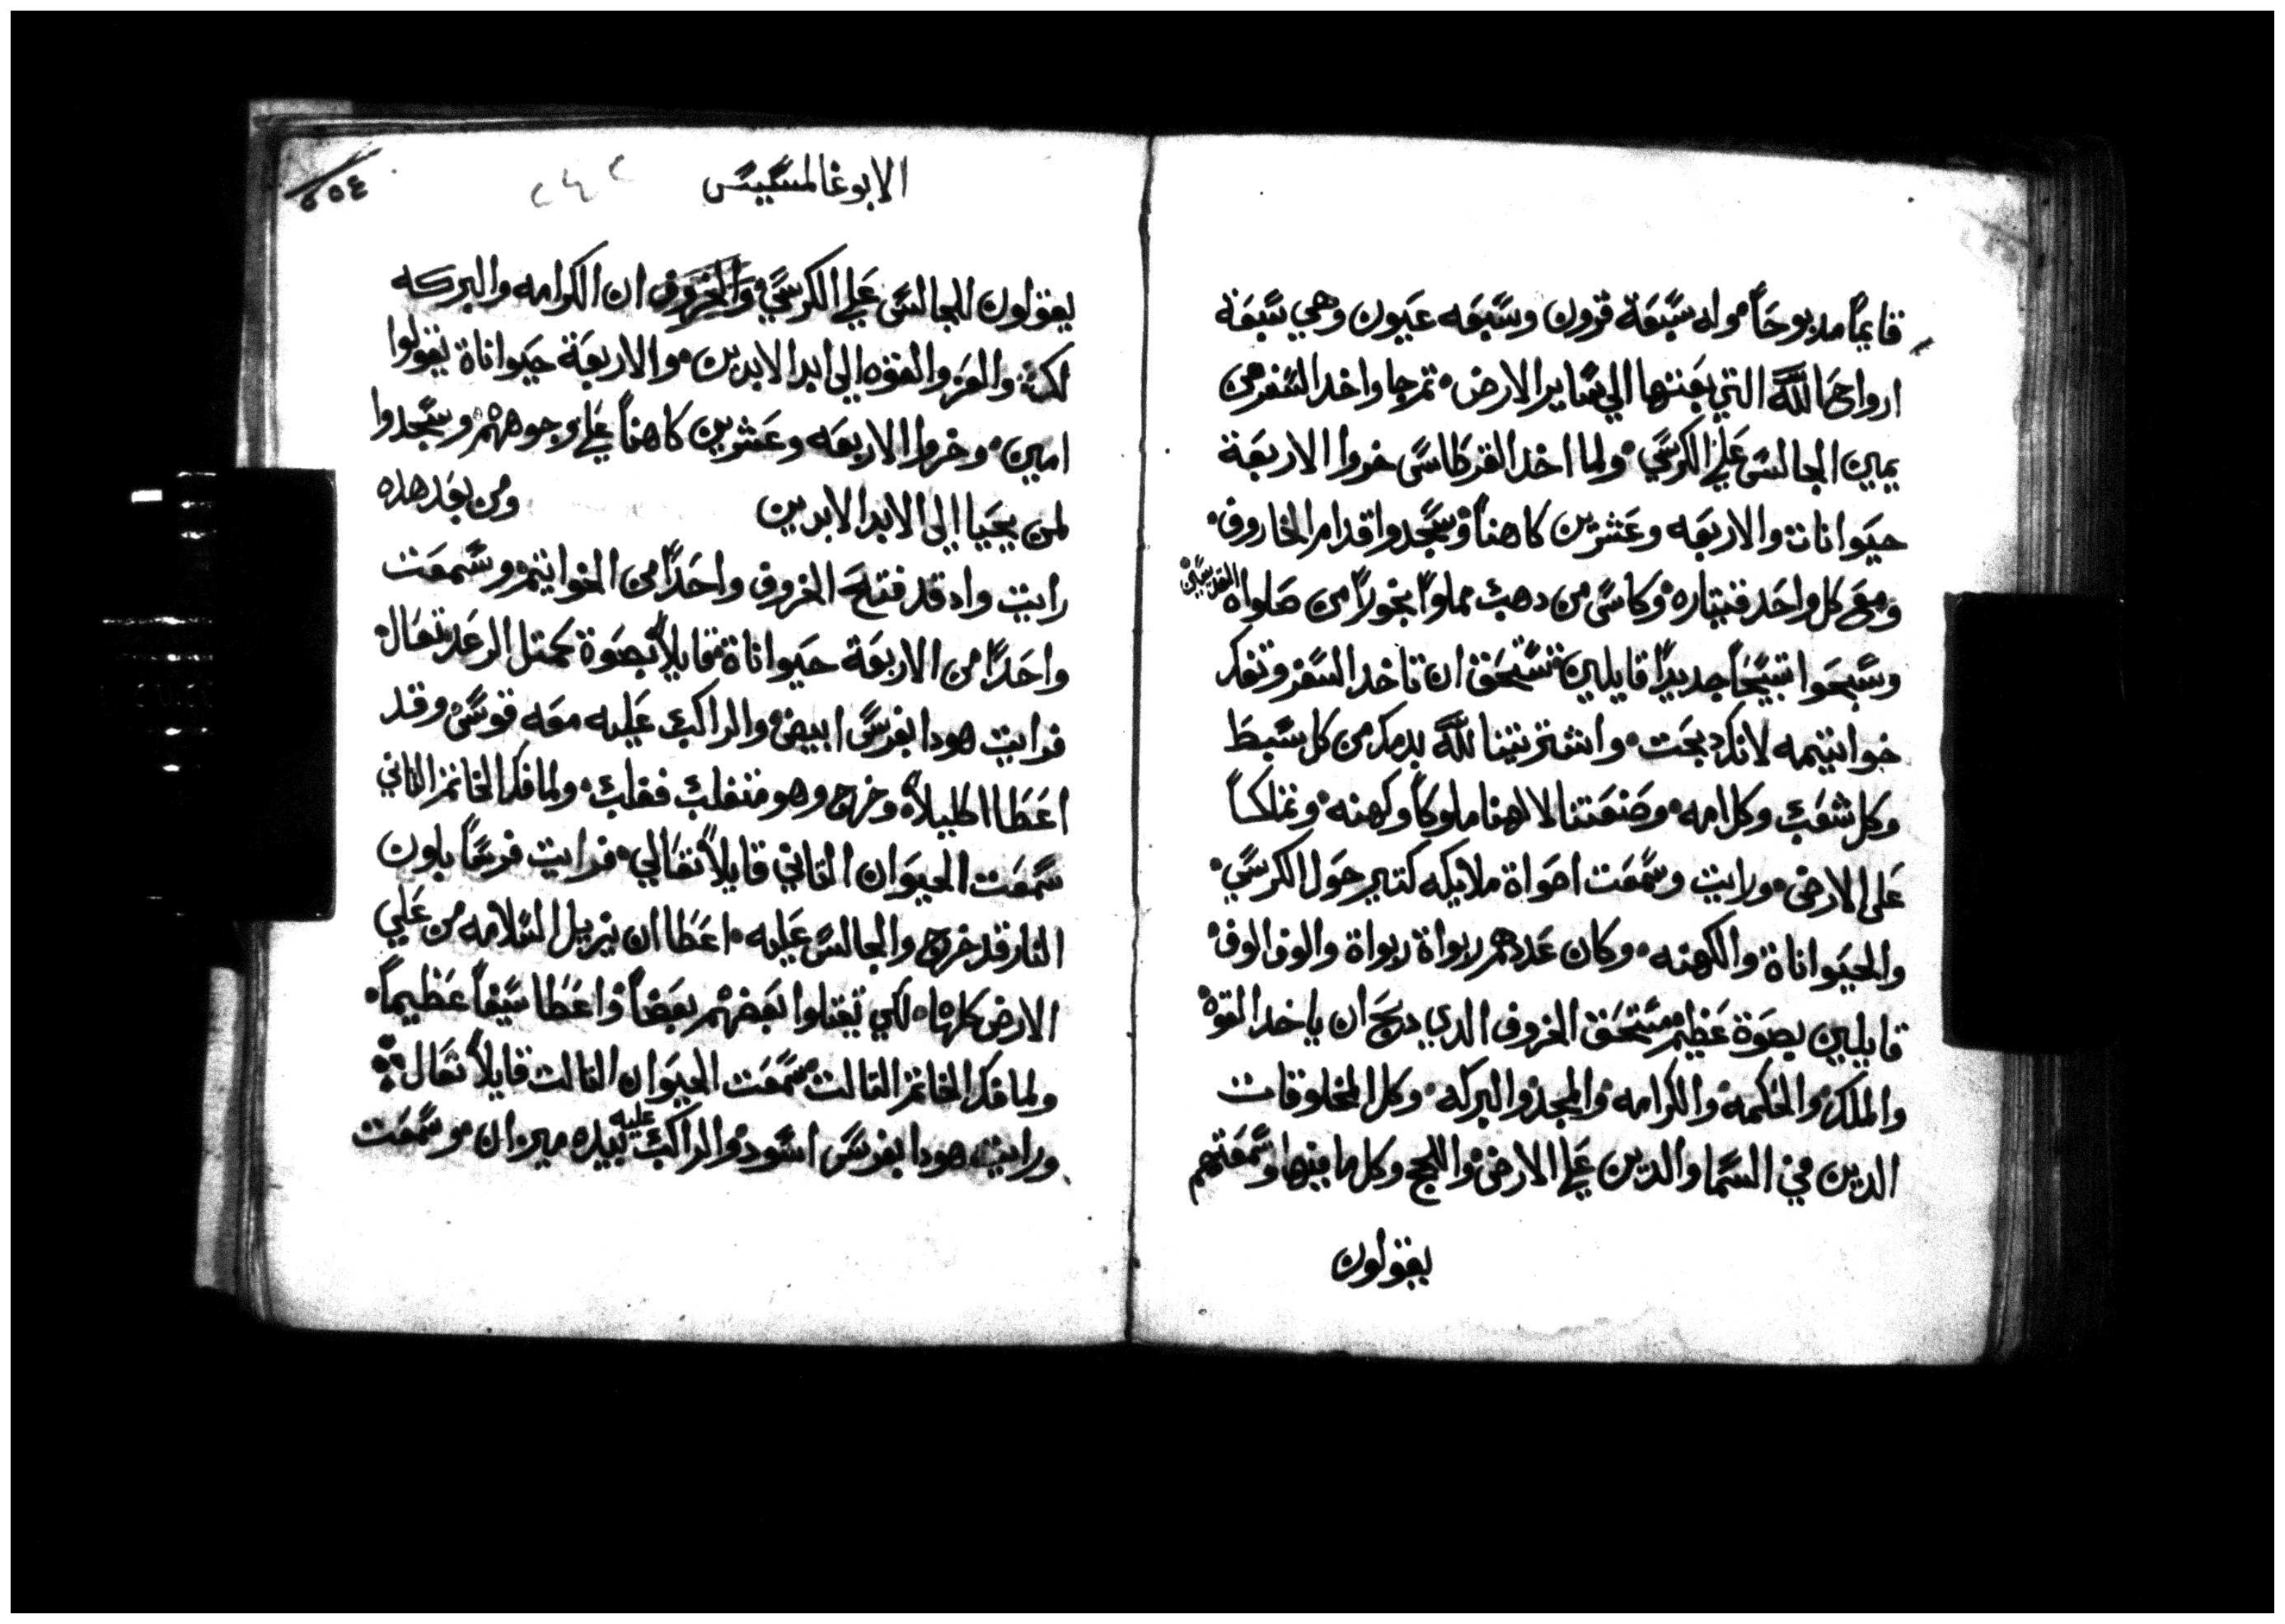 قايماً مدبوحاً وله سبعة قرون وسبعه عيون وهي سبعة
ارواح الله التي بعتها الي ساير الارض تم جا واخد السفر من
يمين الجالس علي الكرسي ولما اخد القرطاس خروا الاربعة
حيوانات والاربعه وعشرين كاهناً وسجدوا قدام الخاروف
ومع كل واحد قيتاره وكاس من دهب مملوا بخوراً من صلواة القديسين
وسبحوا تسبيحاً جديداً قايلين تستحق ان تاخد السفر وتفك
خواتيمه لانك دبحت واشتريتنا لله بدمك من كل سبط
وكل شعب وكل امه وصنعتنا لالهنا ملوكاً وكهنه ونملك
علي الارض ورايت وسمعت اصواة ملايكه كتير حول الكرسي
والحيواناة والكهنه وكان عددهم ربواة ربواة والوف الوف
قايلين بصوة عظيم مستحق الخروف الدي دبح ان ياخد القوة
والملك والحكمه والكرامه والمجد والبركه وكل المخلوقات
الدين في السما والدين علي الارض واللجج وكل ما فيها وسمعتهم
يقولون
الابوغالمسيس
٢٥٤
يقولون للجالس علي الكرسي والخروف ان الكرامه والبركه
لك والعز والقوه الي ابد الابدين والاربعة حيواناة يقولوا
امين وخروا الاربعه وعشرين كاهناً علي وجوههم وسجدوا
لمن يحيا الي الابد الابدين ومن بعد هده
رايت واد قد فتح الخروف واحداً من الخواتيم وسمعت
واحداً من الاربعة حيواناة قايلاً بصوة كمتل الرعد تعال
فرايت هودا بفرس ابيض والراكب عليه معه قوس وقد
اعطا اكليلاً وخرج وهو متغلب فغلب ولما فك الخاتم التاني
سمعت الحيوان التاني قايلاً تعالي فرايت فرساً بلون
النار قد خرج والجالس عليه اعطا ان يزيل السلامه من علي
الارض كلها لكي تقتلوا بعضهم بعضاً واعطا سيفاً عظيماً
ولما فك الخاتم التالت سمعت الحيوان التالت قايلاً تعال
ورايت هودا بفرس اسود والراكب عليه بيده ميزان وسمعت